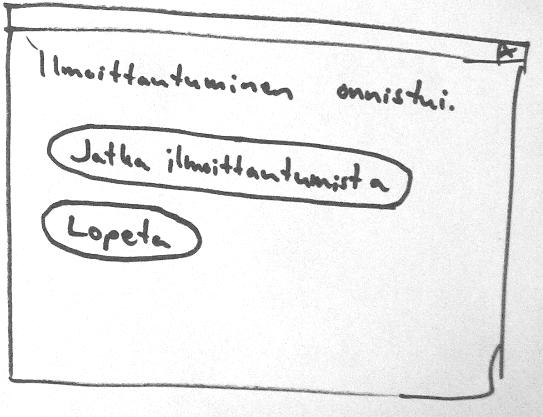 Ilmoittautuminen onnistui.
Jatka ilmoittautumista
Lopeta